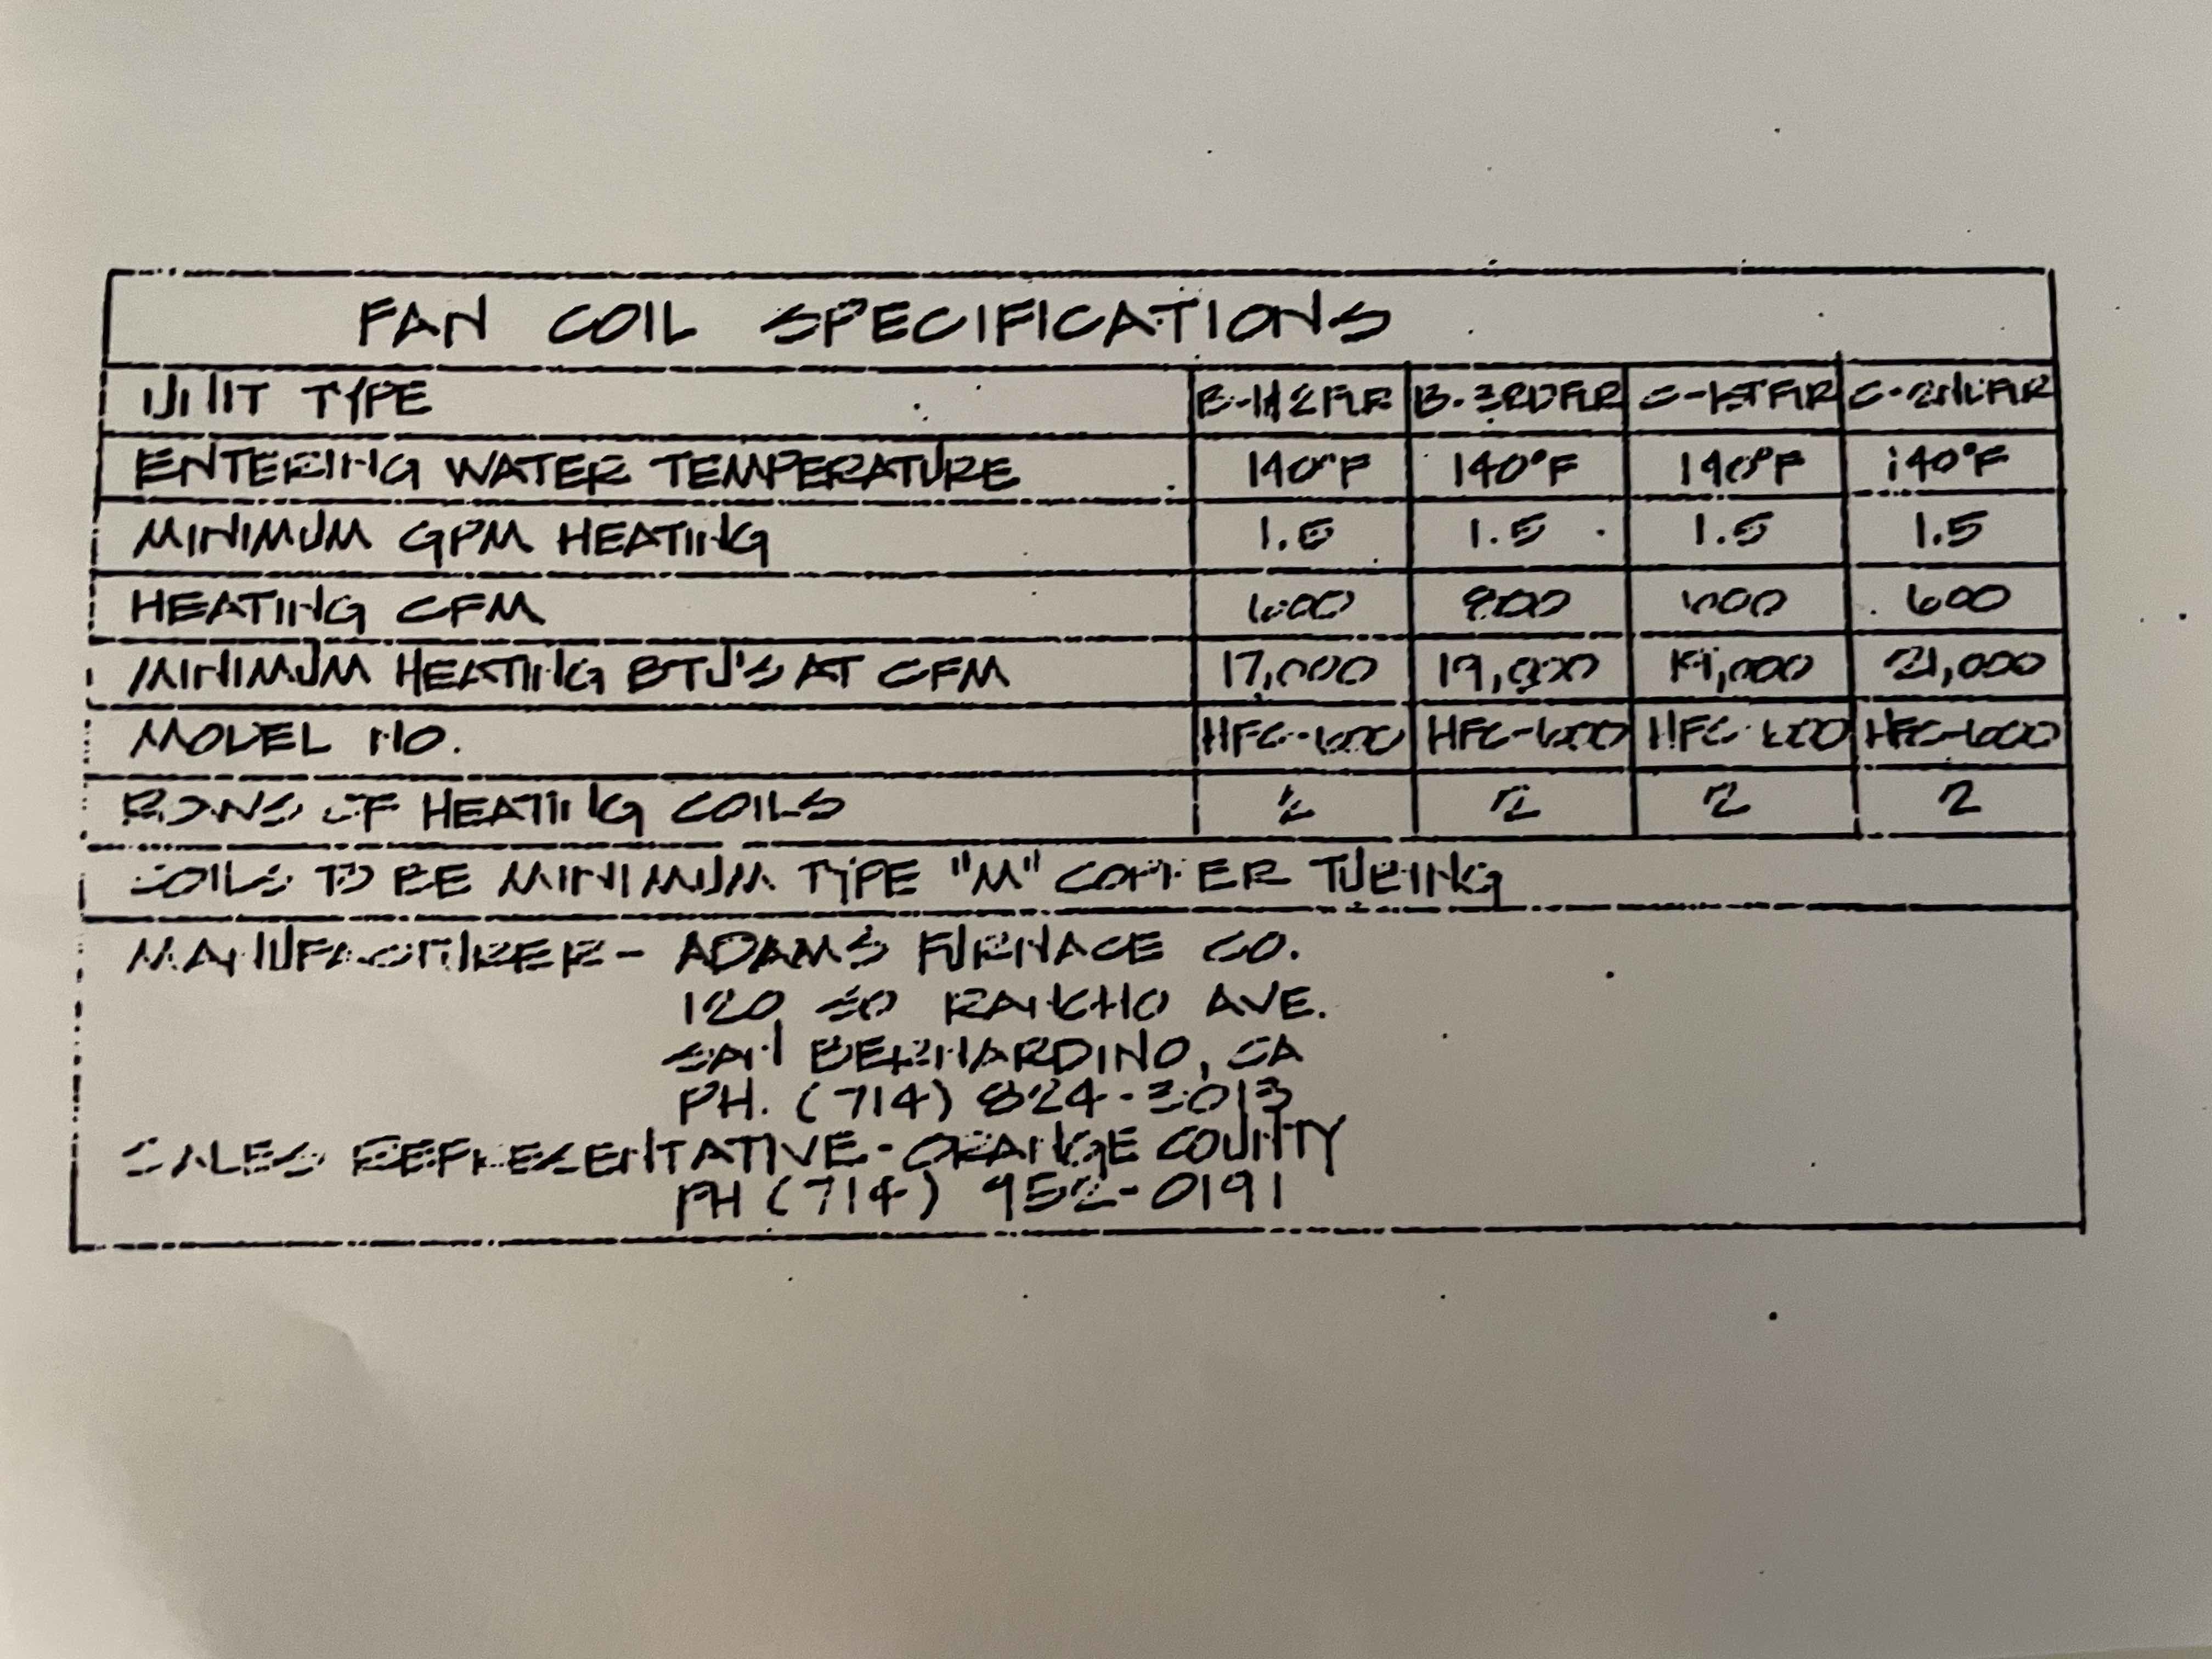 FAN COIL SPECIFICATIONS
UNIT TYPE B-1&2 FLR B-3RD FLR C-1ST FLR C-2ND FLR
ENTERING WATER TEMPERATURE 140°F 140°F 140°F 140°F
MINIMUM GPM HEATING 1.5 1.5 1.5 1.5
HEATING CFM 600 800 600 600
MINIMUM HEATING BTU'S AT CFM 17,000 19,000 19,000 21,000
MODEL NO. HFC-600 HFC-600 HFC-600 HFC-600
ROWS OF HEATING COILS 2 2 2 2
COILS TO BE MINIMUM TYPE "M" COPPER TUBING
MANUFACTURER - ADAMS FURNACE CO.
120 SO RANCHO AVE.
SAN BERNARDINO, CA
PH. (714) 824-3013
SALES REPRESENTATIVE - ORANGE COUNTY
PH (714) 952-0191